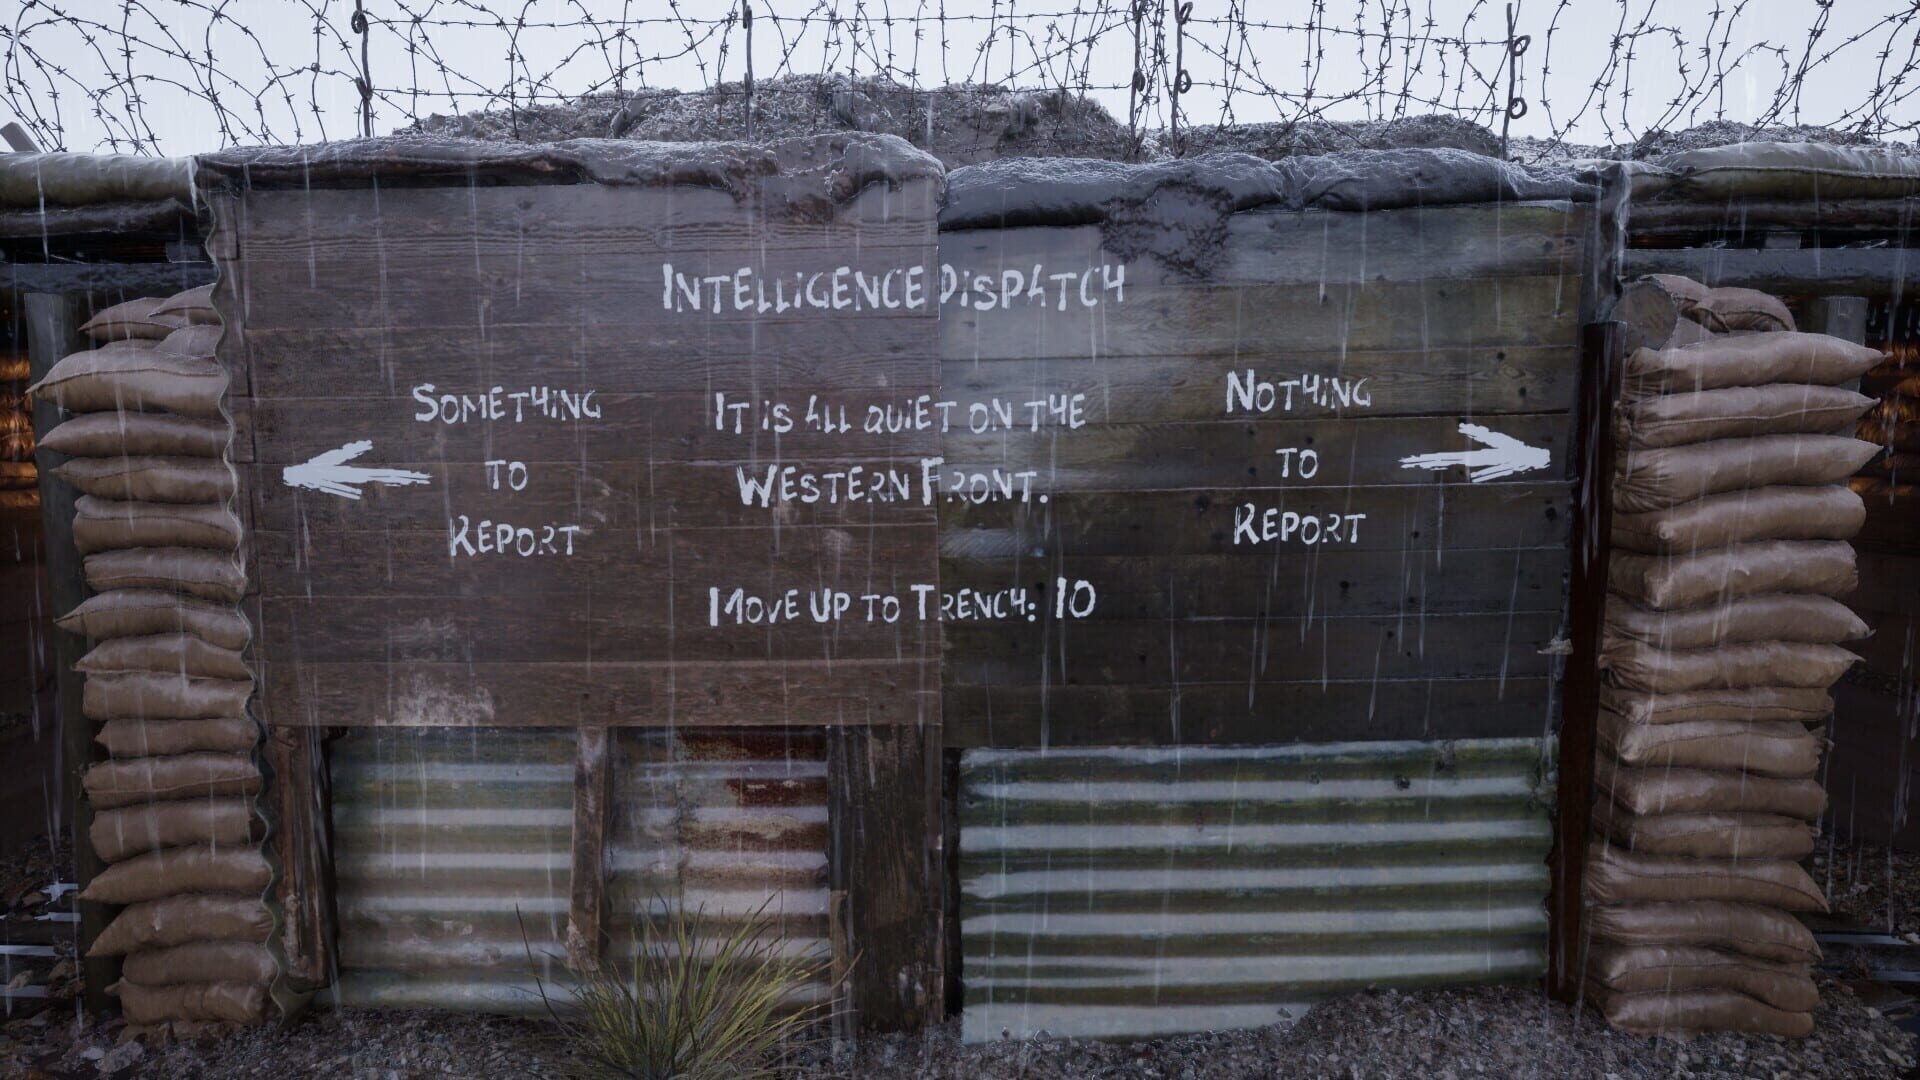 Intelligence Dispatch
Something
to
Report
It is all quiet on the
Western Front.
Move up to Trench: 10
Nothing
to
Report